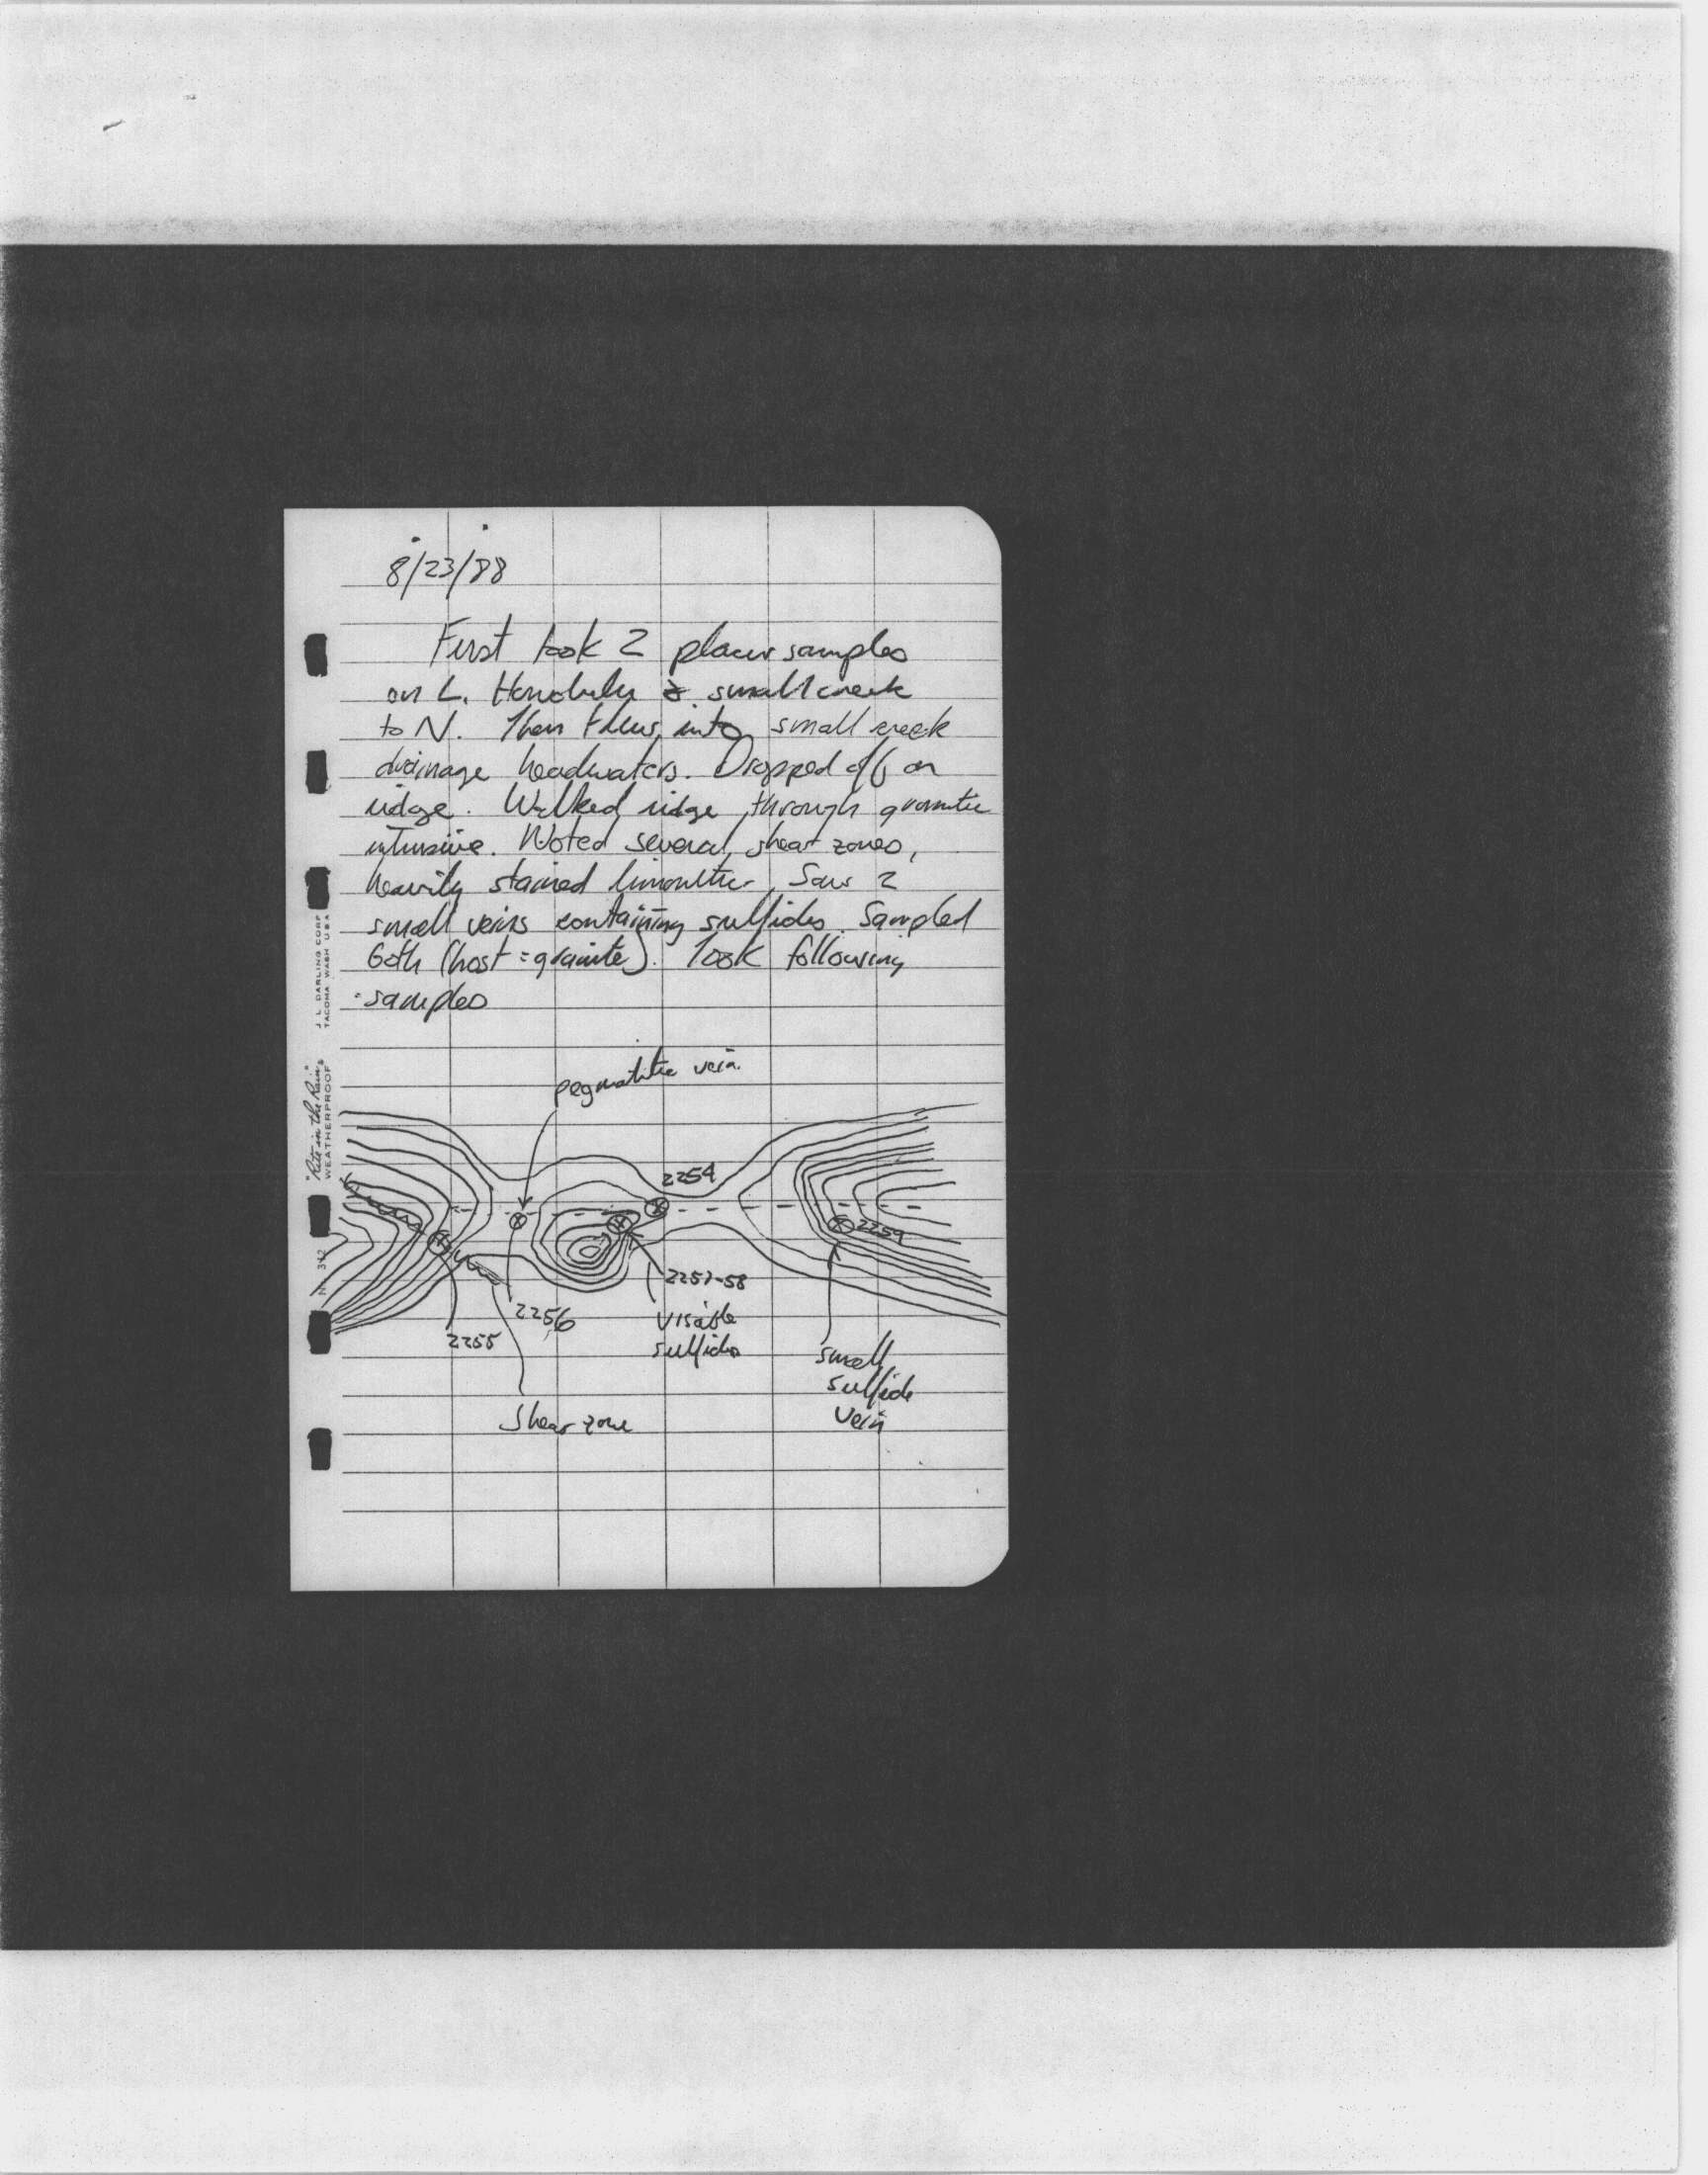 8/23/88
First took 2 placer samples
on L. Honolulu & small creek
to N. Then flew into small creek
drainage headwaters. Dropped off on
ridge. Walked ridge through granitic
intrusive. Noted several shear zones,
heavily stained limonitic. Saw 2
small veins containing sulfides. Sampled
both (host = granite). Took following
samples
pegmatitic vein
2254
2259
2257-58
visible
sulfides
2256
2255
small
sulfide
vein
Shear zone
"Rite in the Rain"
WEATHERPROOF
J. L. DARLING CORP
TACOMA WASH USA
342